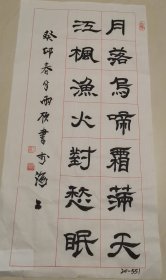 月落烏啼霜滿天
江楓漁火對愁眠
癸卯春月雨書於上
20-551